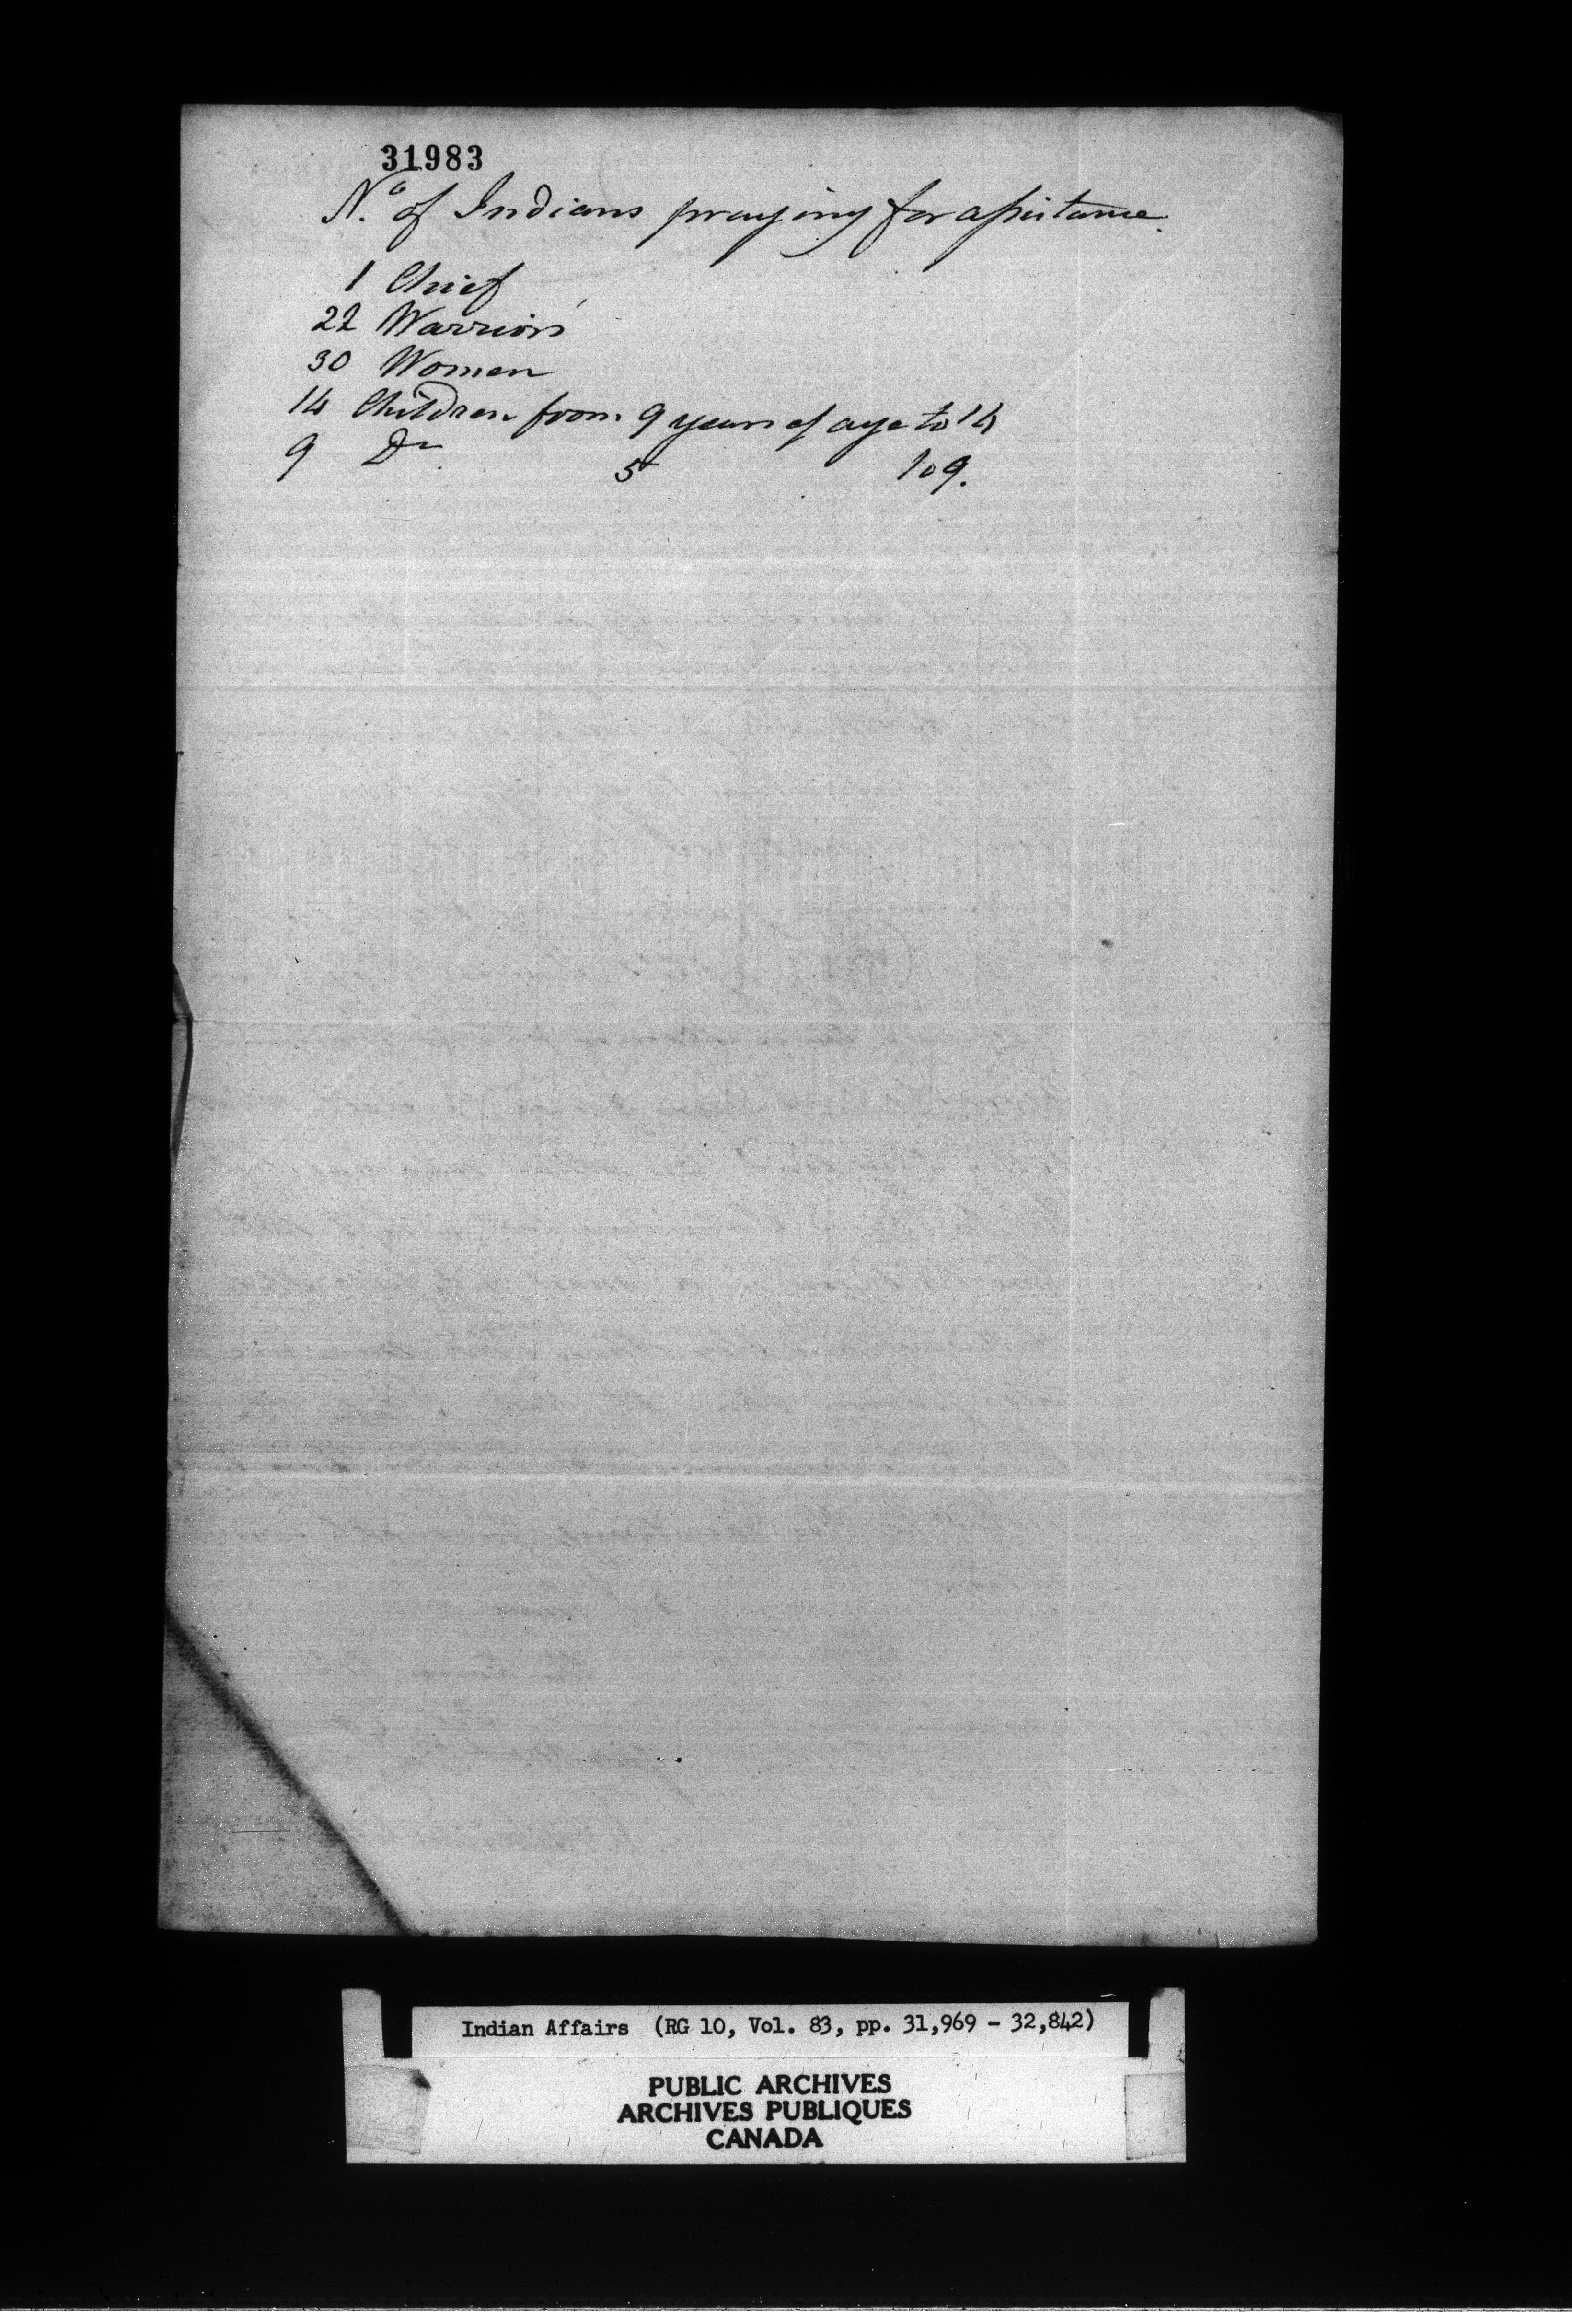 31983
No. of Indians praying for assistance.
1 Chief
22 Warriors
30 Women
14 Children from 9 years of age to 14
9 Do 5 to 9.
Indian Affairs (RG 10, Vol. 83, pp. 31,969 - 32,842)
PUBLIC ARCHIVES
ARCHIVES PUBLIQUES
CANADA